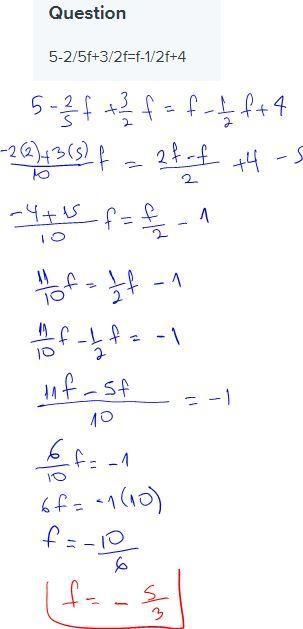 Question
5-2/5f+3/2f=f-1/2f+4
5 - 2/5 f + 3/2 f = f - 1/2 f + 4
(-2(2)+3(5))/10 f = (2f-f)/2 + 4 - 5
(-4+15)/10 f = f/2 - 1
11/10 f = 1/2 f - 1
11/10 f - 1/2 f = -1
(11f - 5f)/10 = -1
6/10 f = -1
6f = -1(10)
f = -10/6
f = - 5/3